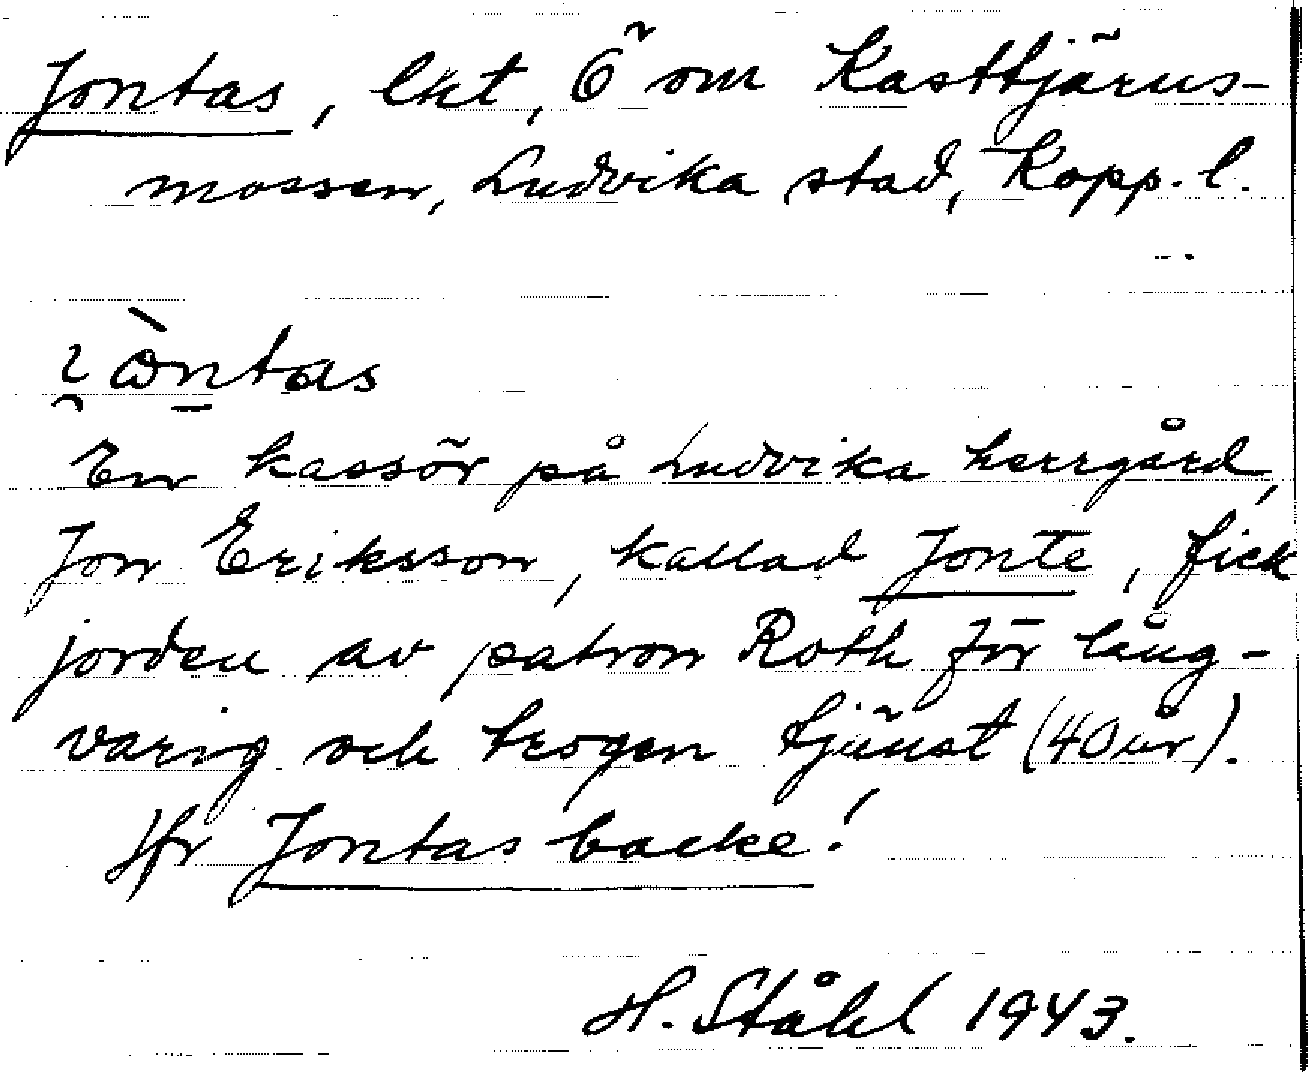 Jontas, lkt, Ö om Kasttjärns-
mossen, Ludvika stad, Kopp. l.
En kassör på Ludvika herrgård,
Jon Eriksson, kallad Jonte, fick
jorden av patron Roth för lång-
varig och trogen tjänst (40 år).
Jfr Jontas backe!
H. Ståhl 1943.